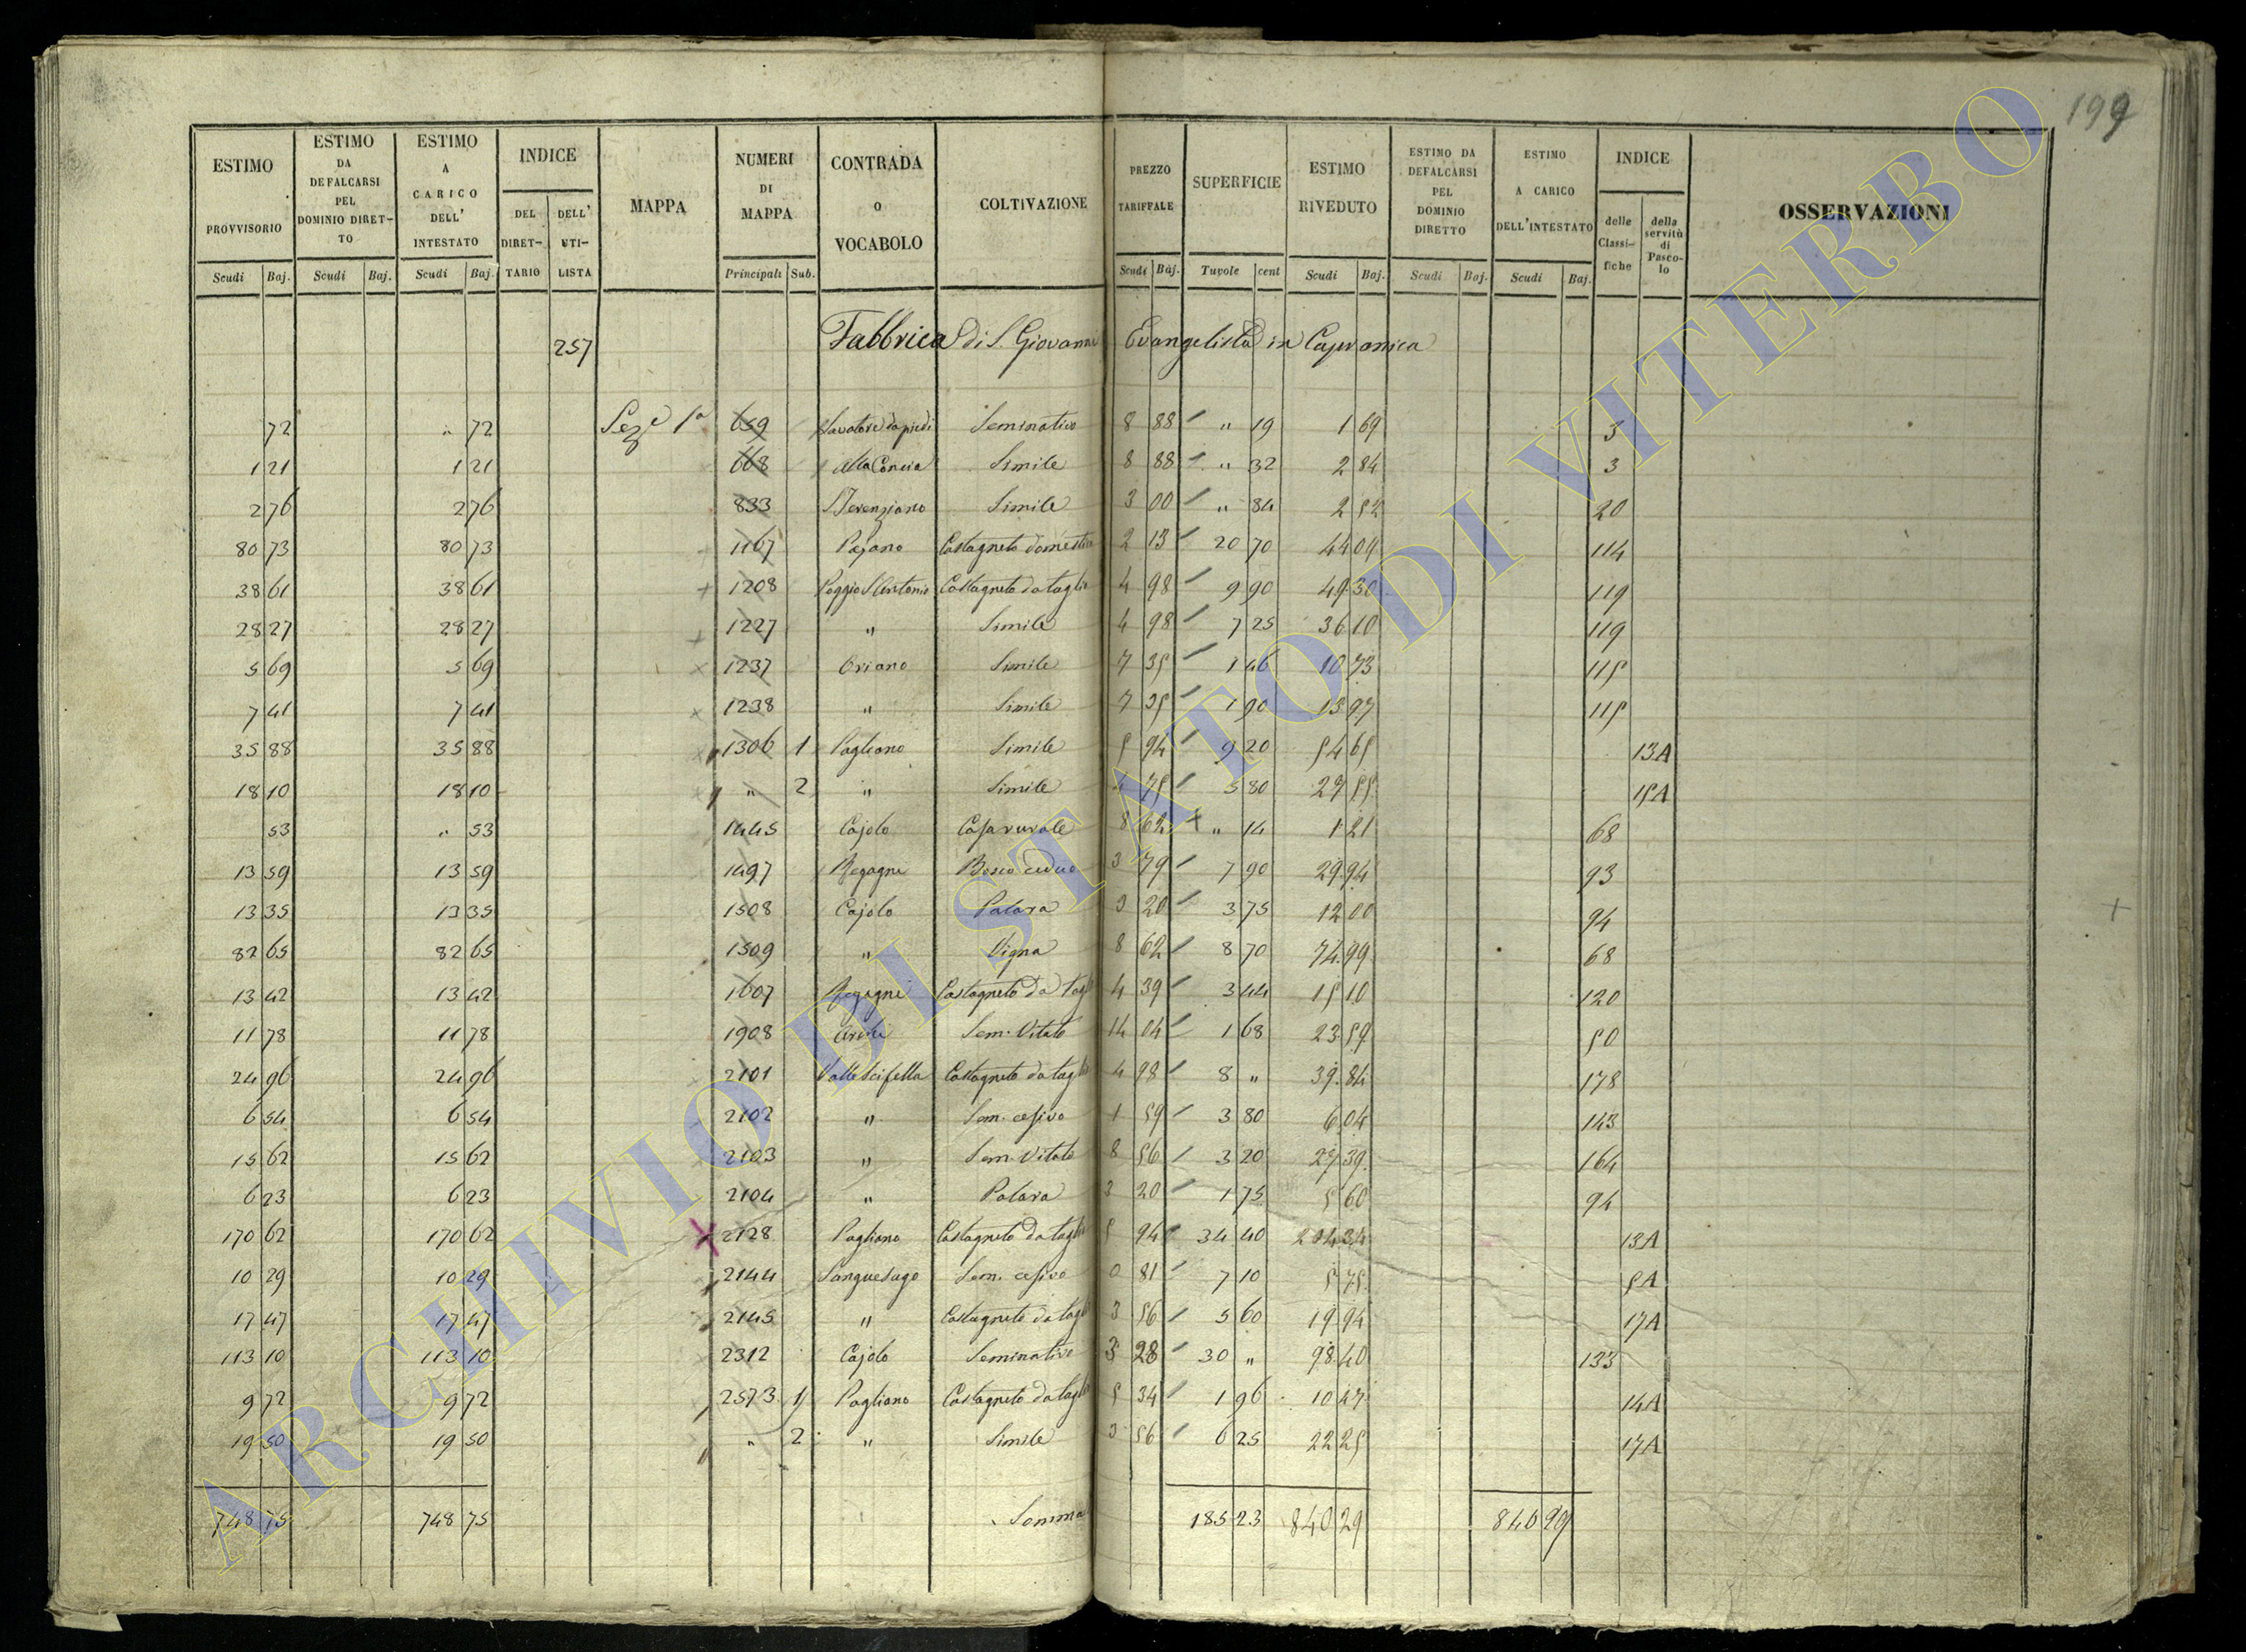 199
ESTIMO PROVVISORIO Scudi Baj.
ESTIMO DA DEFALCARSI PEL DOMINIO DIRET-TO Scudi Baj.
ESTIMO A CARICO DELL' INTESTATO Scudi Baj.
INDICE DEL DIRET-TARIO DELL' UTI-LISTA
MAPPA
NUMERI DI MAPPA Principali Sub.
CONTRADA O VOCABOLO
COLTIVAZIONE
PREZZO TARIFFALE Scudi Baj.
SUPERFICIE Tuvole cent
ESTIMO RIVEDUTO Scudi Baj.
ESTIMO DA DEFALCARSI PEL DOMINIO DIRETTO Scudi Baj.
ESTIMO A CARICO DELL'INTESTATO Scudi Baj.
INDICE delle Classi-fiche della servitù di Pasco-lo
OSSERVAZIONI
257 Fabbrica di S. Giovanni Evangelista in Capranica
72 " 72 Seze 1a 659 Seminativo 8 88 " 19 1 69 3
1 21 1 21 668 alla Concia Simile 8 88 " 32 2 84 3
2 76 2 76 833 S Terenziano Simile 3 00 " 84 2 52 20
80 73 80 73 1167 Pajano Castagneto domestico 2 13 20 70 44 09 114
38 61 38 61 1208 Poggio S Antonio Castagneto da taglio 4 98 9 90 49 30 119
28 27 28 27 1227 " Simile 4 98 7 25 36 10 119
5 69 5 69 1237 Oriano Simile 7 35 1 46 10 73 115
7 41 7 41 1238 " Simile 7 35 1 90 13 97 115
35 88 35 88 1306 1 Pagliano Simile 5 94 9 20 54 65 13A
18 10 18 10 " 2 " Simile 4 75 5 80 27 55 15A
53 " 53 1445 Cajolo Casa rurale 8 62 " 14 1 21 68
13 59 13 59 1497 Regagne Bosco ceduo 3 79 7 90 29 94 93
13 35 13 35 1508 Cajolo Palara 3 20 3 75 12 00 94
82 65 82 65 1509 " Vigna 8 62 8 70 74 99 68
13 42 13 42 1607 Regagne Castagneto da tagl 4 39 3 44 15 10 120
11 78 11 78 1908 Sem. Vitato 14 04 1 68 23 59 50
24 96 24 96 2101 Valle Scifella Castagneto da taglio 4 98 8 " 39 84 178
6 54 6 54 2102 " Sem. cesivo 1 59 3 80 6 04 143
15 62 15 62 2103 " Sem. Vitato 8 56 3 20 27 39 164
6 23 6 23 2104 " Palara 3 20 1 75 5 60 94
170 62 170 62 2128 Pagliano Castagneto da taglio 5 94 34 40 204 34 13A
10 29 10 29 2144 Sanguesugo Sem. cesivo 0 81 7 10 5 75 5A
17 47 17 47 2145 " Castagneto da taglio 3 56 5 60 19 94 17A
113 10 113 10 2312 Cajolo Seminativo 3 28 30 " 98 40 133
9 72 9 72 2573 1 Pagliano Castagneto da taglio 5 34 1 96 10 47 14A
19 50 19 50 " 2 " Simile 3 56 6 25 22 25 17A
748 75 748 75 Somma 185 23 840 29 840 29
ARCHIVIO DI STATO DI VITERBO